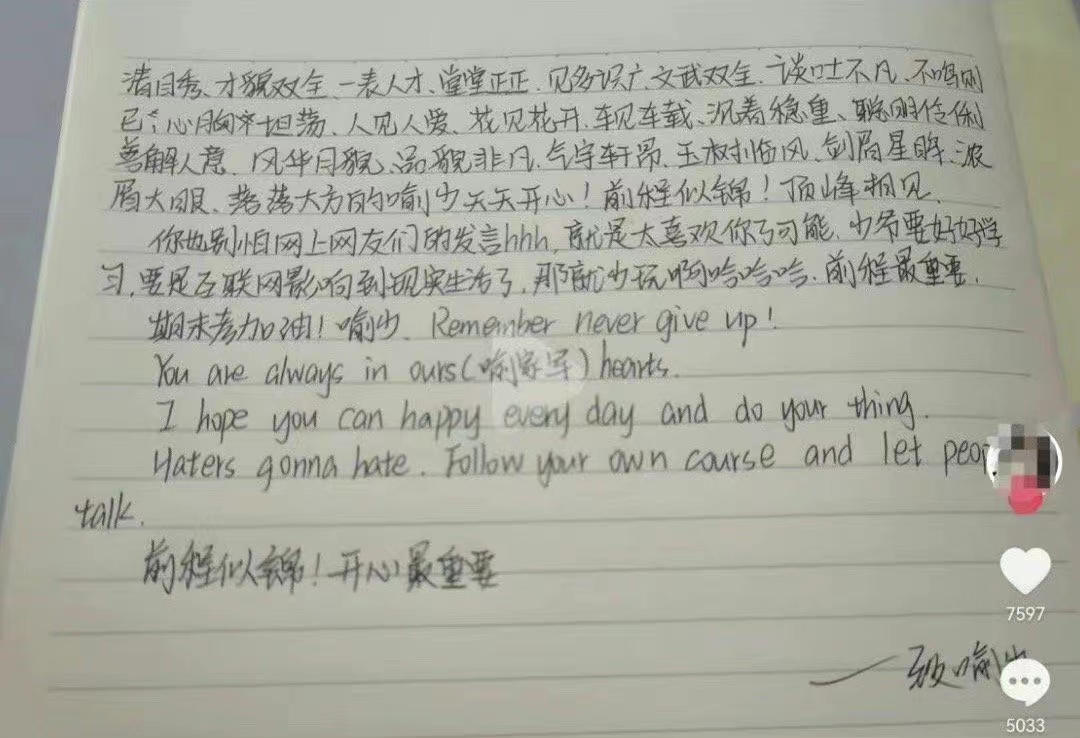 清目秀、才貌双全、一表人才、堂堂正正、见多识广、文武双全、谈吐不凡、不鸣则
已、心胸坦荡、人见人爱、花见花开、车见车载、沉着稳重、聪明伶俐
善解人意、风华月貌、品貌非凡、气宇轩昂、玉树临风、剑眉星眸、浓
眉大眼、落落大方的喻少天天开心！前程似锦！顶峰相见.
你也别怕网上网友们的发言hhh，就是太喜欢你了可能，少爷要好好学
习，要是互联网影响到现实生活了，那就少玩啊哈哈哈，前程最重要.
期末考加油！喻少. Remember never give up!
You are always in ours(喻家军) hearts.
I hope you can happy every day and do your thing.
Haters gonna hate. Follow your own course and let
talk.
前程似锦！开心最重要
——致喻少
7597
5033